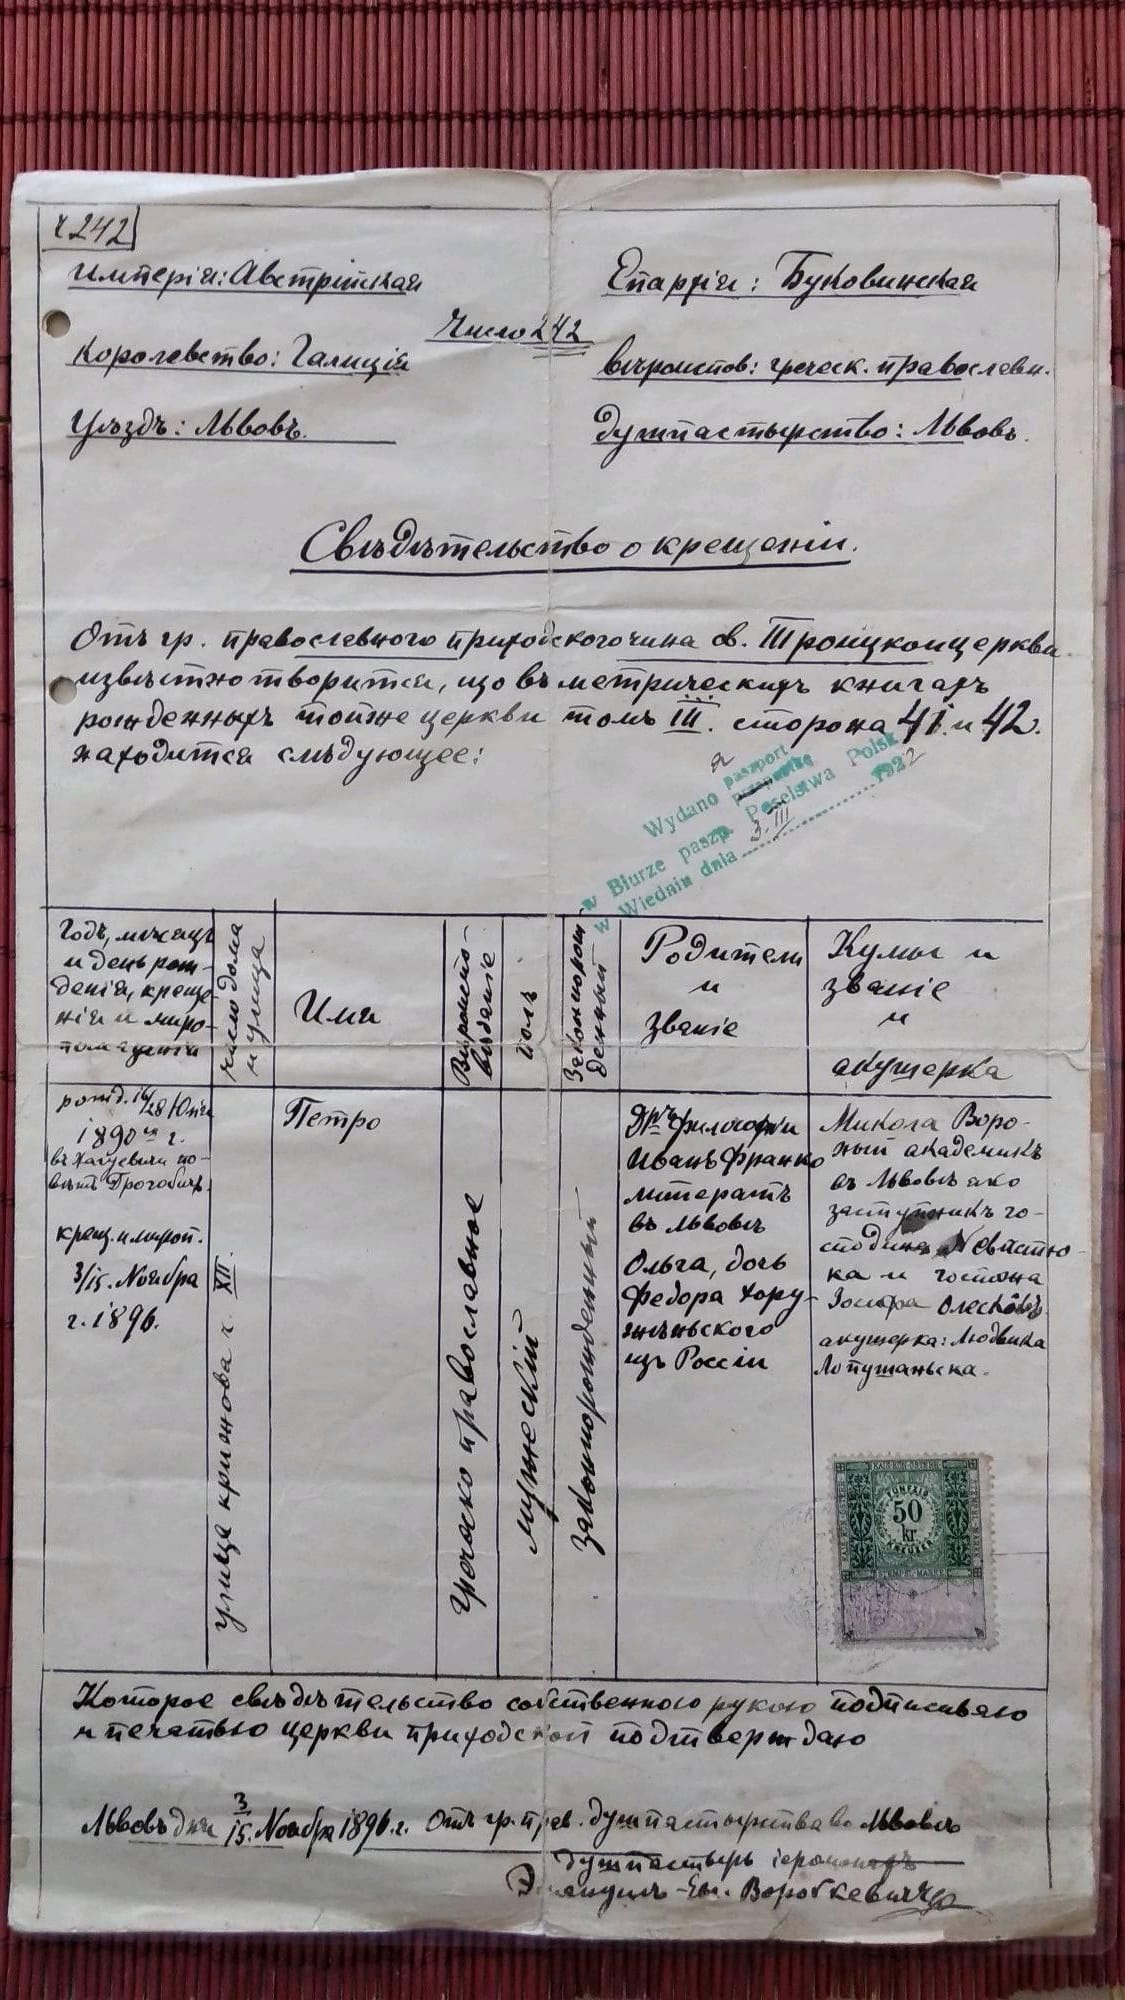 ч 242
Имперія: Австрійская
Епархія: Буковинская
Число 242
Королевство: Галиція
вѣроиспов: греческ. православн.
Уѣздъ: Львовъ.
Душпастырство: Львовъ.
Свѣдѣтельство о крещеніи.
Отъ гр. православного приходского чина св. Троицкои церкви
извѣстно творится, що въ метрическихъ книгахъ
рожденныхъ тойже церкви томъ III. сторона 41 и 42.
находится слѣдующее:
Wydano paszport
w Biurze paszp. Poselstwa Polsk
w Wiedniu dnia 3. III 1922
Годъ, мѣсяцъ
и день рож-
денія, креще-
нія и миро-
помазанія
число дома
и улица
Имя
Вѣроиспо-
вѣданіе
полъ
Законнорож-
денный
Родители
и
званіе
Кумы и
званіе
и
акушерка
рожд. 16/28 Юнія
1890 г.
въ Нагуевичи по-
вѣтъ Дрогобичъ.
крещ. и мироп.
3/15. Ноября
г. 1896.
улица крижова ч. XII.
Петро
Греческо православное
мужескій
законнорожденный
Дръ филозофіи
Иванъ Франко
литератъ
въ Львовѣ
Ольга, дочь
Федора Хору-
жѣньского
изъ Россіи
Микола Воро-
ный академикъ
въ Львовѣ яко
заступникъ го-
сподина
ка и госпожа
Олесковъ.
акушерка: Людвика
Лопушаньска.
KAIS. KÖN. ÖSTERR.
FÜNFZIG
50
kr
KREUZER
STEMPEL-MARKE
Которое свѣдѣтельство собственною рукою подписываю
и печатью церкви приходской подтверждаю
Львовъ дня 3/15. Ноября 1896. г. Отъ гр. прав. душпастырства во Львовѣ
душпастырь іеромонахъ
Воробкевичъ